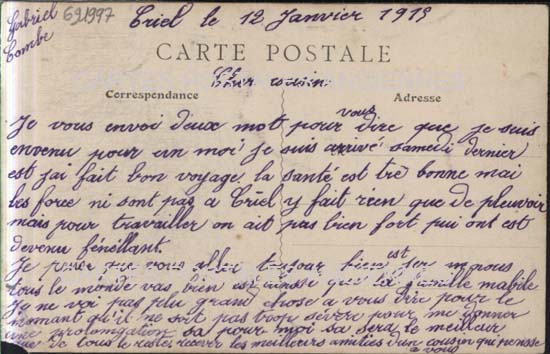 Gabriel
Combe
691997
Triel le 12 Janvier 1915
CARTE POSTALE
Cher cousin
Correspondance
Adresse
Je vous envoi d'eux mot pour vous dire que je suis
envenu pour un moi je suis arrivé samedi dernier
est jai fait bon voyage la santé est trè bonne mai
les force ni sont pas a Triel y fait rien que de pleuvoir
mais pour travailler on ait pas bien fort pui ont est
devenu fénéllant.
Je pense que vous allez toujour bien est
tous le monde vas bien est ainsse que la famille mabile
Je ne voi pas plu grand chose a vous dire pour le
momant qu'il ne soit pas troop sévère pour me donner
une prolongation sa pour moi sa sera le meilleur
que de tous le restes recever les meilleurs amitiés d'un cousin qui pense
a vous